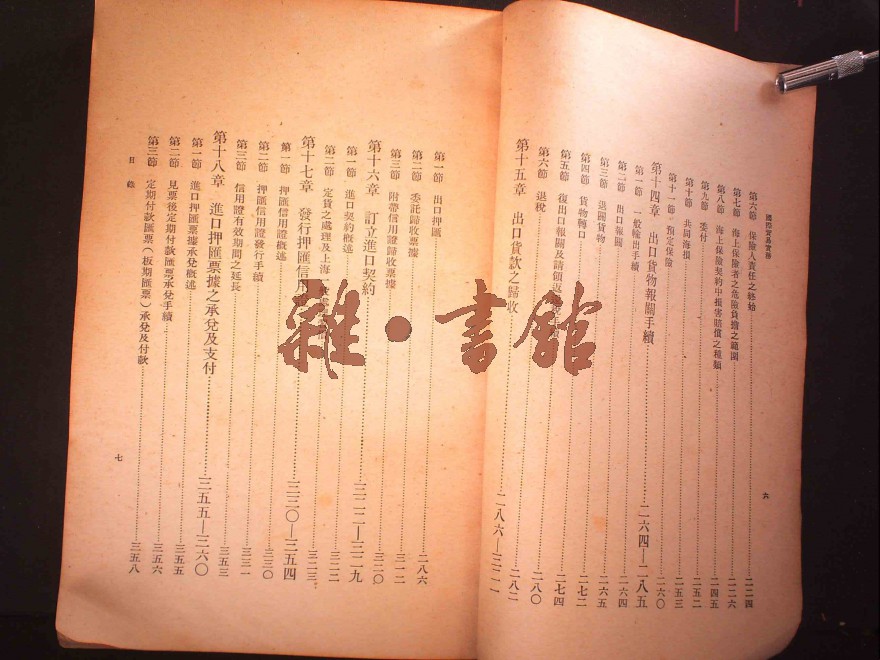 國際貿易實務
第六節 保險人責任之終始 二二四
第七節 海上保險者之危險負擔之範圍 二二六
第八節 海上保險契約中損害賠償之種類 二四五
第九節 委付 二五二
第十節 共同海損 二五三
第十一節 預定保險 二六〇
第十四章 出口貨物報關手續 二六四—二八五
第一節 一般輸出手續 二六四
第二節 出口報關 二六五
第三節 退關貨物 二七二
第四節 貨物轉口 二七四
第五節 復出口報關及請領 二八〇
第六節 退稅 二八二
第十五章 出口貨款之歸收 二八六—三二一
六
第一節 出口押匯 二八六
第二節 委託歸收票據 三一二
第三節 附帶信用證歸收票據 三二〇
第十六章 訂立進口契約 三二二—三二九
第一節 進口契約概述 三二二
第二節 定貨之處理及上海一 三二三
第十七章 發行押匯信用 三三〇—三五四
第一節 押匯信用證概述 三三〇
第二節 押匯信用證發行手續 三三一
第三節 信用證有效期間之延長 三五三
第十八章 進口押匯票據之承兌及支付 三五五—三六〇
第一節 進口押匯票據承兌概述 三五五
第二節 見票後定期付款匯票承兌手續 三五六
第三節 定期付款匯票（板期匯票）承兌及付款 三五八
目錄
七
雜·書館